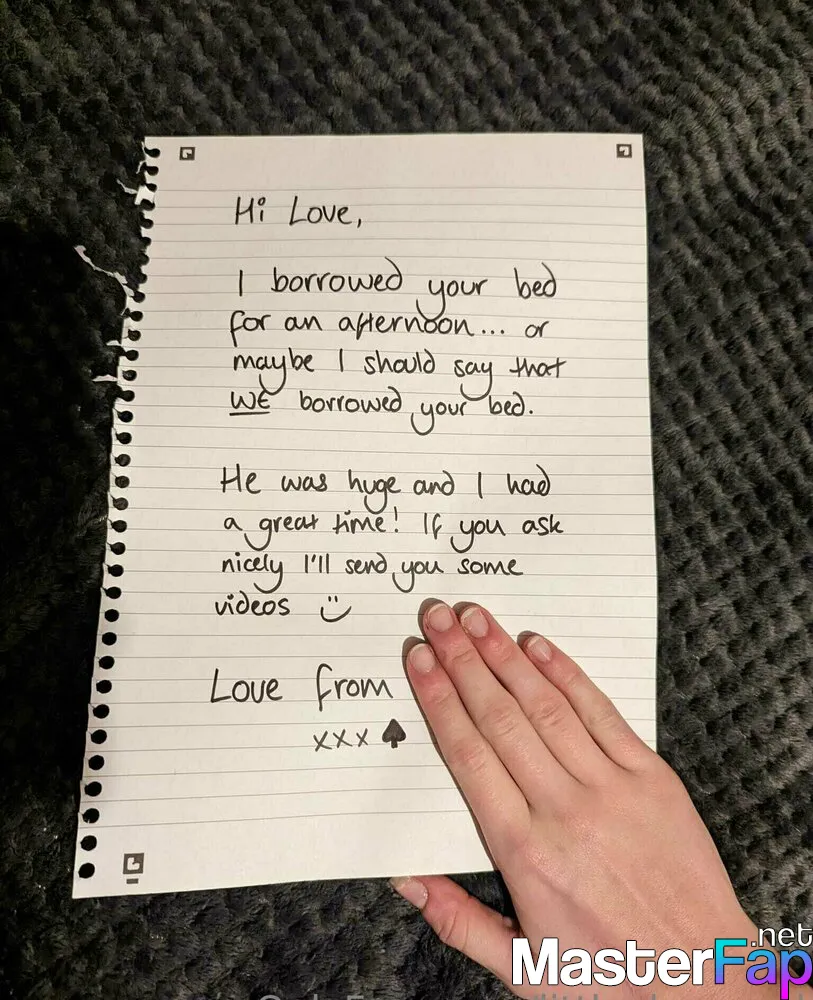 Hi Love,
I borrowed your bed
for an afternoon... or
maybe I should say that
WE borrowed your bed.
He was huge and I had
a great time! If you ask
nicely I'll send you some
videos :)
Love from
xxx ♠
MasterFap.net